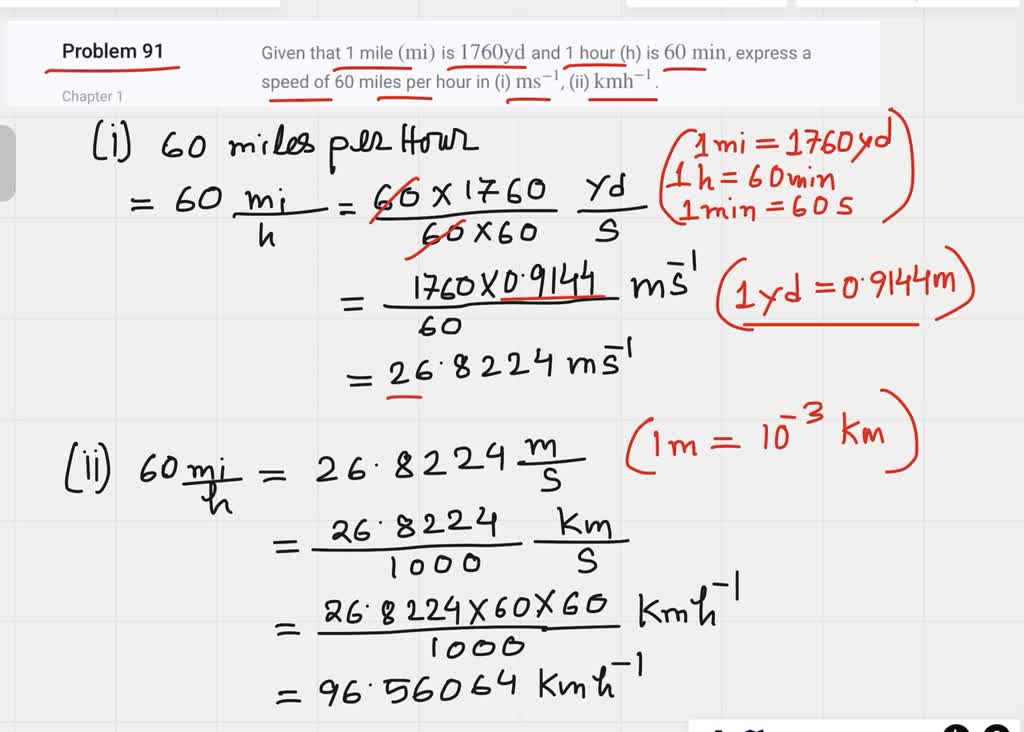 Problem 91
Chapter 1
Given that 1 mile (mi) is 1760yd and 1 hour (h) is 60 min, express a
speed of 60 miles per hour in (i) ms⁻¹, (ii) kmh⁻¹.
(i) 60 miles per Hour
= 60 mi/h = 60 × 1760 / 60 × 60 yd/s
(1 mi = 1760 yd
1 h = 60 min
1 min = 60 s)
= 1760 × 0.9144 / 60 ms⁻¹ (1 yd = 0.9144 m)
= 26.8224 ms⁻¹
(ii) 60 mi/h = 26.8224 m/s (1m = 10⁻³ km)
= 26.8224 / 1000 Km/s
= 26.8224 × 60 × 60 / 1000 Kmh⁻¹
= 96.56064 Kmh⁻¹